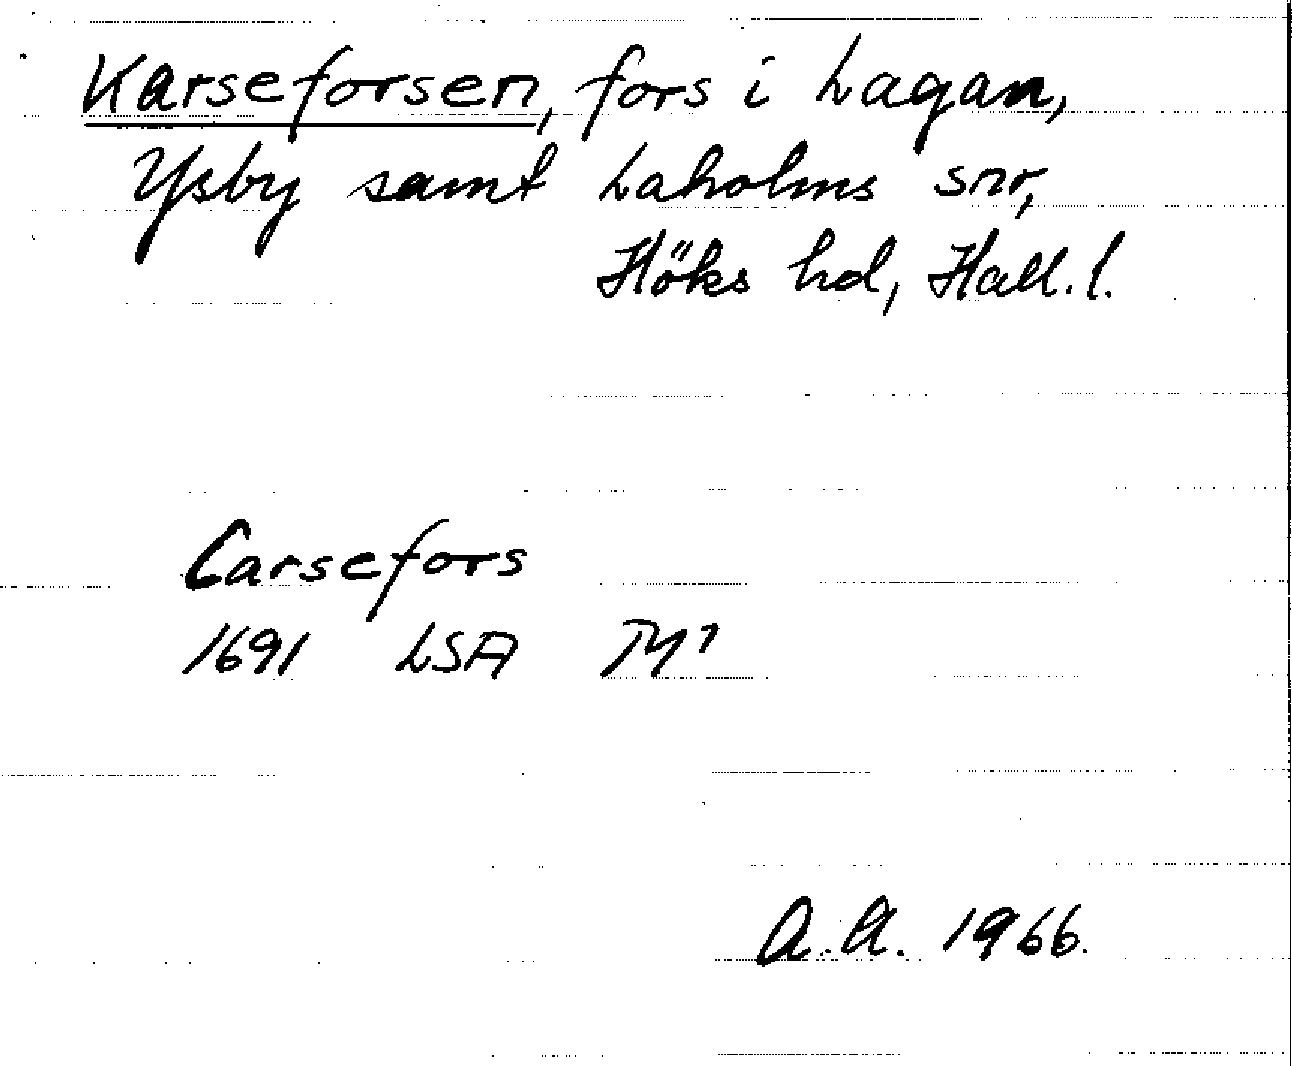 Karseforsen, fors i Lagan,
Ysby samt Laholms snr,
Höks hd, Hall. l.
Carsefors
1691 LSA
A.A. 1966.